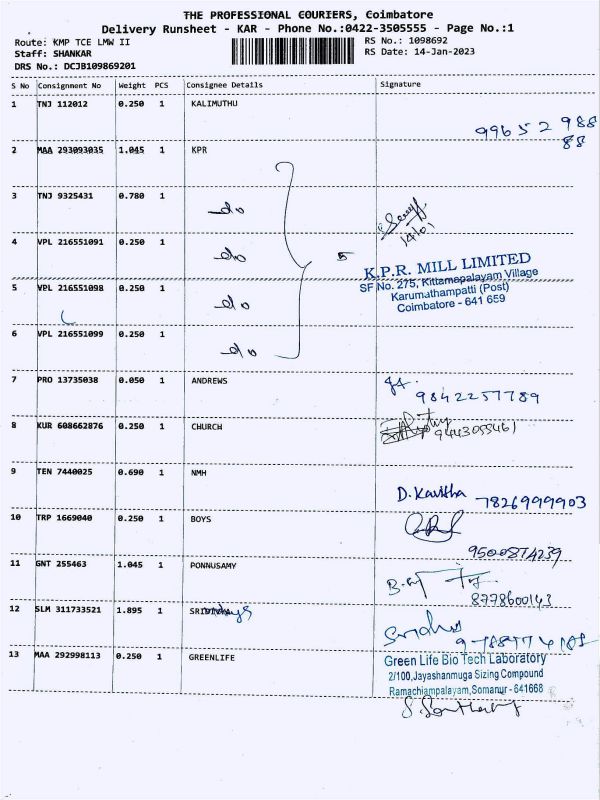 THE PROFESSIONAL COURIERS, Coimbatore
Delivery Runsheet - KAR - Phone No.:0422-3505555 - Page No.:1
Route: KMP TCE LMW II
RS No.: 1098692
Staff: SHANKAR
RS Date: 14-Jan-2023
DRS No.: DCJB109869201
S No Consignment No Weight PCS Consignee Details Signature
1 TNJ 112012 0.250 1 KALIMUTHU
99652 988
88
2 MAA 293093035 1.045 1 KPR
3 TNJ 9325431 0.780 1
do
4 VPL 216551091 0.250 1
do 5
K.P.R. MILL LIMITED
SF No. 275, Kittampalayam Village
5 VPL 216551098 0.250 1
Karumathampatti (Post)
do
Coimbatore - 641 659
6 VPL 216551099 0.250 1
do
7 PRO 13735038 0.050 1 ANDREWS
9842257789
8 KUR 608662876 0.250 1 CHURCH
9443055461
9 TEN 7440025 0.690 1 NMH
D. Kavitha 7826999903
10 TRP 1669040 0.250 1 BOYS
9500874239
11 GNT 255463 1.045 1 PONNUSAMY
8778600143
12 SLM 311733521 1.895 1
13 MAA 292998113 0.250 1 GREENLIFE
Green Life Bio Tech Laboratory
2/100,Jayashanmuga Sizing Compound
Ramachiampalayam,Somanur - 641668